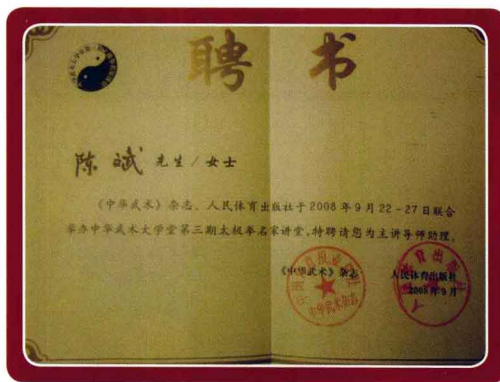 聘书
陈斌 先生/女士
《中华武术》杂志、人民体育出版社于2008年9月22-27日联合
举办中华武术大学堂第三期太极拳名家讲堂，特聘请您为主讲导师助理。
《中华武术》杂志 人民体育出版社
2008年9月
中华武术杂志